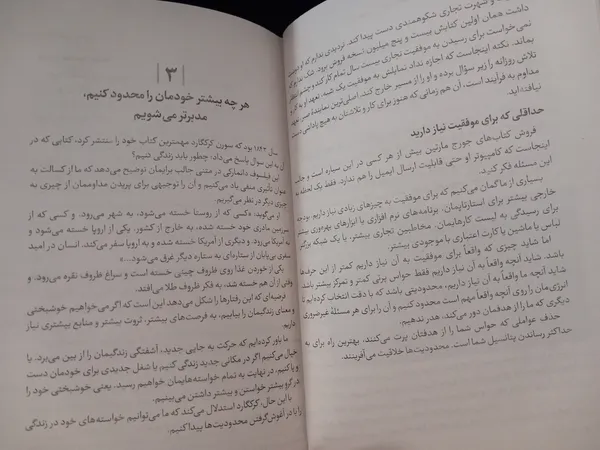 و شهرت تجاری شکوهمندی دست پیدا کند. تردیدی ندارم که او
داشت همان اولین کتابش بیست و پنج میلیون نسخه فروش برود. شک ندارم که
نمی‌خواست برای رسیدن به موفقیت تجاری بیست سال تمام کار کند و چشم
بماند. نکته اینجاست که اجازه نداد تمایلش به موفقیت یک شبه، تعهد او به کار و
تلاش روزانه را زیر سؤال برده و او را از مسیر خارج کند. اصلی‌ترین نمایندهٔ صبر، تعهد
مداوم به فرآیند است، آن هم زمانی که هنوز برای کار و تلاشتان به هیچ پاداشی دست
نیافته‌اید.
حداقلی که برای موفقیت نیاز دارید
فروش کتاب‌های جورج مارتین بیش از هر کسی در این سیاره است و جالب
اینجاست که کامپیوتر او حتی قابلیت ارسال ایمیل را هم ندارد. فقط یک لحظه به
این مسئله فکر کنید.
بسیاری از ما گمان می‌کنیم که برای موفقیت به چیزهای زیادی نیاز داریم. بودجه
خارجی بیشتر برای استارتاپمان. برنامه‌های نرم افزاری یا ابزارهای بهره‌وری بیشتر
برای رسیدگی به لیست کارهایمان. مخاطبین تجاری بیشتر، یا یک شبکه بزرگتر.
لباس یا ماشین یا کارت اعتباری با موجودی بیشتر.
اما شاید چیزی که واقعاً برای موفقیت به آن نیاز داریم کمتر از این حرف‌ها
باشد. شاید آنچه واقعاً به آن نیاز داریم فقط حواس پرتی کمتر و تمرکز بیشتر باشد.
شاید آنچه ما واقعاً به آن نیاز داریم، محدودیتی باشد که با دقت انتخاب کرده‌ایم تا
انرژی‌مان را روی آنچه واقعاً مهم است محدود کنیم و آن را برای هر مسئلهٔ غیرضروری
دیگری که ما را از هدفمان دور می‌کند، هدر ندهیم.
حذف عواملی که حواس شما را از هدفتان پرت می‌کنند، بهترین راه برای به
حداکثر رساندن پتانسیل شما است. محدودیت‌ها خلاقیت می‌آفرینند.
| ۳ |
هر چه بیشتر خودمان را محدود کنیم،
مدبرتر می‌شویم
سال ۱۸۴۳ بود که سورن کرکگارد مهمترین کتاب خود را منتشر کرد، کتابی که در
آن به این سوال پاسخ می‌داد: چطور باید زندگی کنیم؟
این فیلسوف دانمارکی در متنی جالب برایمان توضیح می‌دهد که ما از کسالت به
عنوان تأثیری منفی یاد می‌کنیم و آن را توجیهی برای پریدن مداوممان از چیزی به
چیزی دیگر در نظر می‌گیریم.
او می‌گوید: «کسی که از روستا خسته می‌شود، به شهر می‌رود. و کسی که از
سرزمین مادری خود خسته شده، به خارج از کشور. یکی از اروپا خسته می‌شود و
به آمریکا می‌رود. و دیگری از آمریکا خسته شده و به اروپا سفر می‌کند. انسان در امید
سفری بی‌پایان از ستاره‌ای به ستاره دیگر غرق می‌شود...»
یکی از خوردن غذا روی ظروف چینی خسته است و سراغ ظروف نقره می‌رود. و
وقتی از آن هم خسته شد، به فکر ظروف طلا می‌افتد.
فرضیه‌ای که این رفتارها را شکل می‌دهد این است که اگر می‌خواهیم خوشبختی
و معنای زندگیمان را بیابیم، به فرصت‌های بیشتر، ثروت بیشتر و منابع بیشتری نیاز
داریم.
ما باور کرده‌ایم که حرکت به جایی جدید، آشفتگی زندگیمان را از بین می‌برد. یا
خیال می‌کنیم اگر در مکانی جدید زندگی کنیم، یا شغل جدیدی برای خودمان دست
و پا کنیم، در نهایت به تمام خواسته‌هایمان خواهیم رسید. یعنی خوشبختی خود را
در گرو بیشتر خواستن و بیشتر داشتن می‌بینیم.
با این حال، کرکگارد استدلال می‌کند که ما می‌توانیم خواسته‌های خود در زندگی
را با در آغوش گرفتن محدودیت‌ها پیدا کنیم.